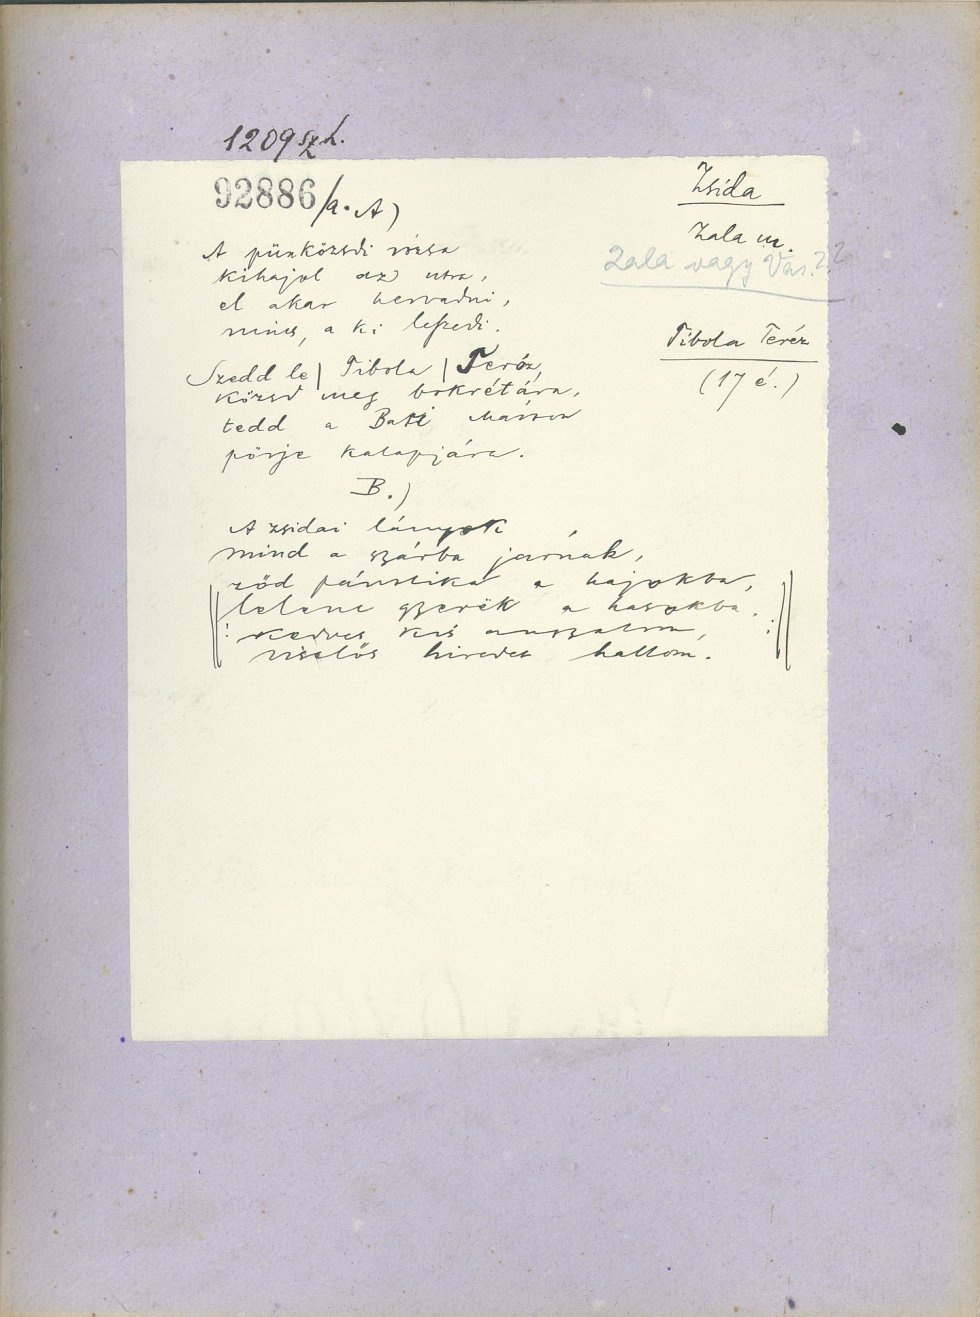 1209 sz h.
92886/a. A)
Zsida
Zala m.
Zala vagy Vas. ? ?
Tibola Teréz
(17 é.)
A pünközsdi rózsa
kihajol az utra,
el akar hervadni,
nincs, a ki leszedi.
Szedd le | Tibola | Teréz,
közsd meg bokrétára,
tedd a Batki
pörje kalapjára.
B.)
A zsidai lányok
mind a szárba járnak,
zöd pántlika a hajokba,
lelenc gyerëk a hasokba.
kedves kis anyzatom,
viselős hiredet hallom.